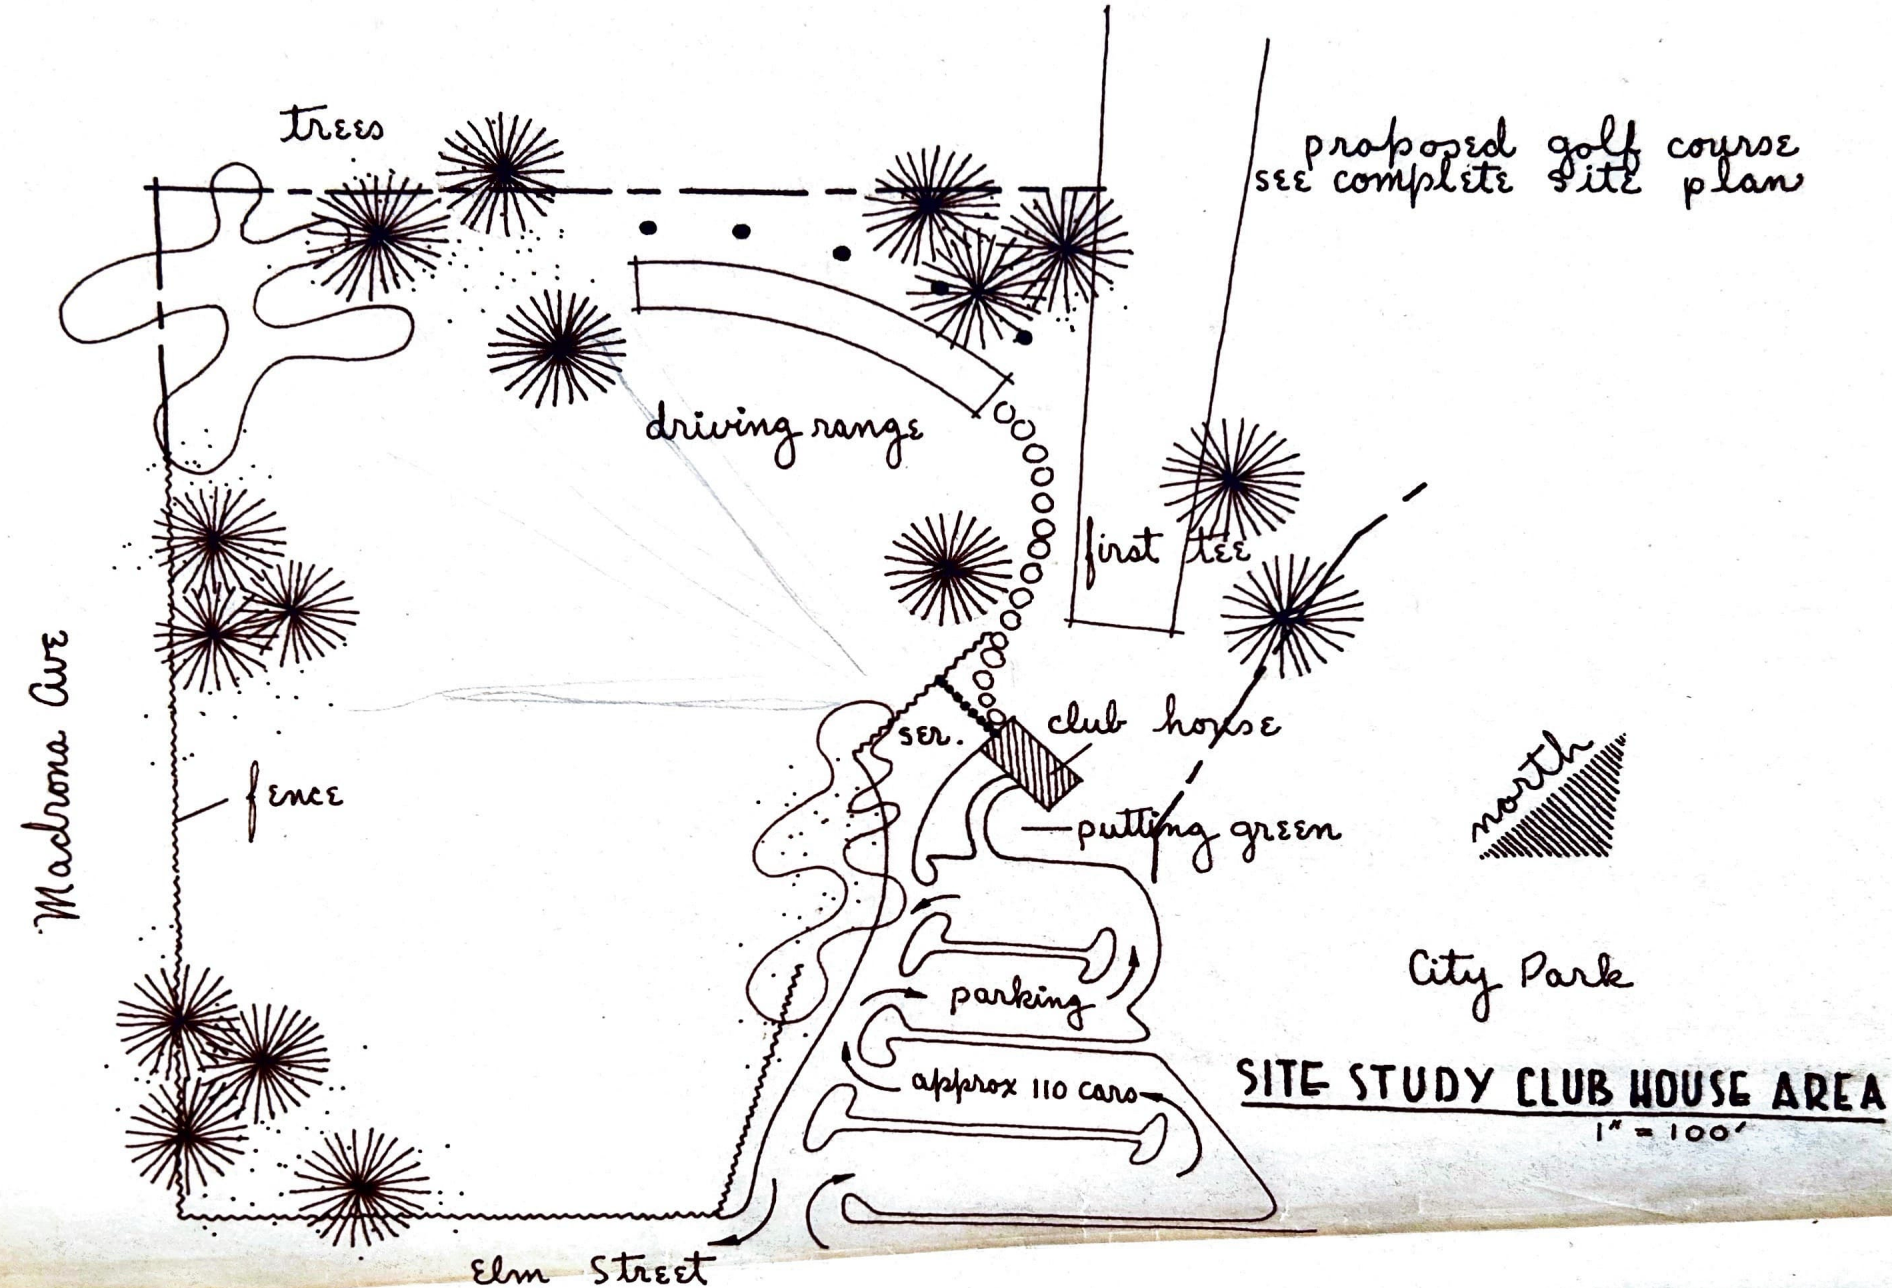 trees
proposed golf course
see complete site plan
driving range
first tee
Madrona Ave
fence
ser.
club house
north
putting green
City Park
parking
approx 110 cars
SITE STUDY CLUB HOUSE AREA
1" = 100'
Elm Street